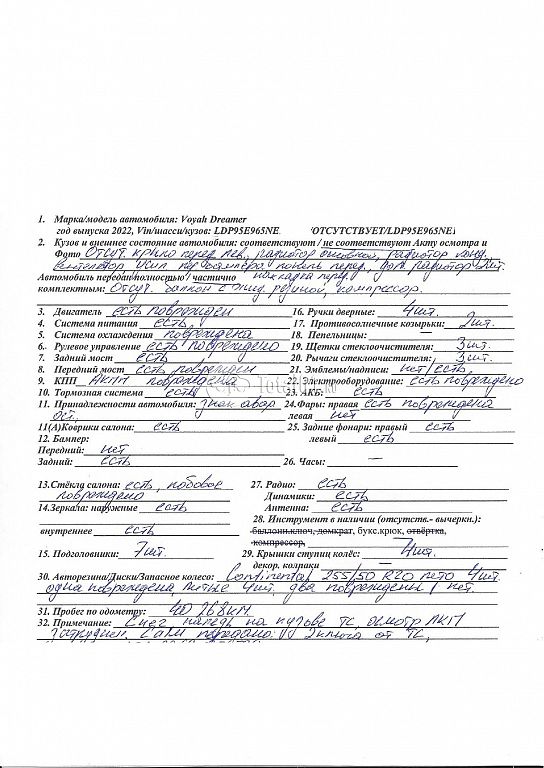 1. Марка/модель автомобиля: Voyah Dreamer
год выпуска 2022, Vin/шасси/кузов: LDP95E965NE. ОТСУТСТВУЕТ/LDP95E965NE1
2. Кузов и внешнее состояние автомобиля: соответствуют / не соответствуют Акту осмотра и
Фото Отсут. крыло перед лев., радиатор основной, радиатор конд.
вентилятор, усил. пер. бампера, панель перед., доп. радиатор 2шт.
Автомобиль передан полностью / частично накладка перед.
комплектным: Отсут. балкон с жид. резиной, компрессор.
3. Двигатель есть поврежден 16. Ручки дверные: 4шт.
4. Система питания есть 17. Противосолнечные козырьки: 2шт.
5. Система охлаждения повреждена 18. Пепельницы: —
6. Рулевое управление есть повреждено 19. Щетки стеклоочистителя: 3шт.
7. Задний мост есть 20. Рычаги стеклоочистителя: 3шт.
8. Передний мост есть поврежден 21. Эмблемы/надписи: нет/есть,
9. КПП АКПП повреждена 22. Электрооборудование: есть повреждено
10. Тормозная система есть 23. АКБ: есть
11. Принадлежности автомобиля: знак авар 24.Фары: правая есть повреждена
ост. левая нет
11(А)Коврики салона: есть 25. Задние фонари: правый есть
12. Бампер: левый есть
Передний: нет
Задний: есть 26. Часы: —
13.Стёкла салона: есть, лобовое 27. Радио: есть
повреждено Динамики: есть
14.Зеркала: наружные есть Антенна: есть
28. Инструмент в наличии (отсутств.- вычеркн.):
внутреннее есть баллонн.ключ, домкрат, букс.крюк, отвёртка,
компрессор,
15. Подголовники: 7шт. 29. Крышки ступиц колёс: 4шт.
декор. колпаки —
30. Авторезина/Диски/Запасное колесо: Continental 255/50 R20 лето 4шт.
одна повреждена литые 4шт. два повреждены / нет.
31. Пробег по одометру: 40 268км
32. Примечание: Снег наледь на кузове ТС, осмотр ЛКП
затруднен. С а/м передано: 2 ключа от ТС,